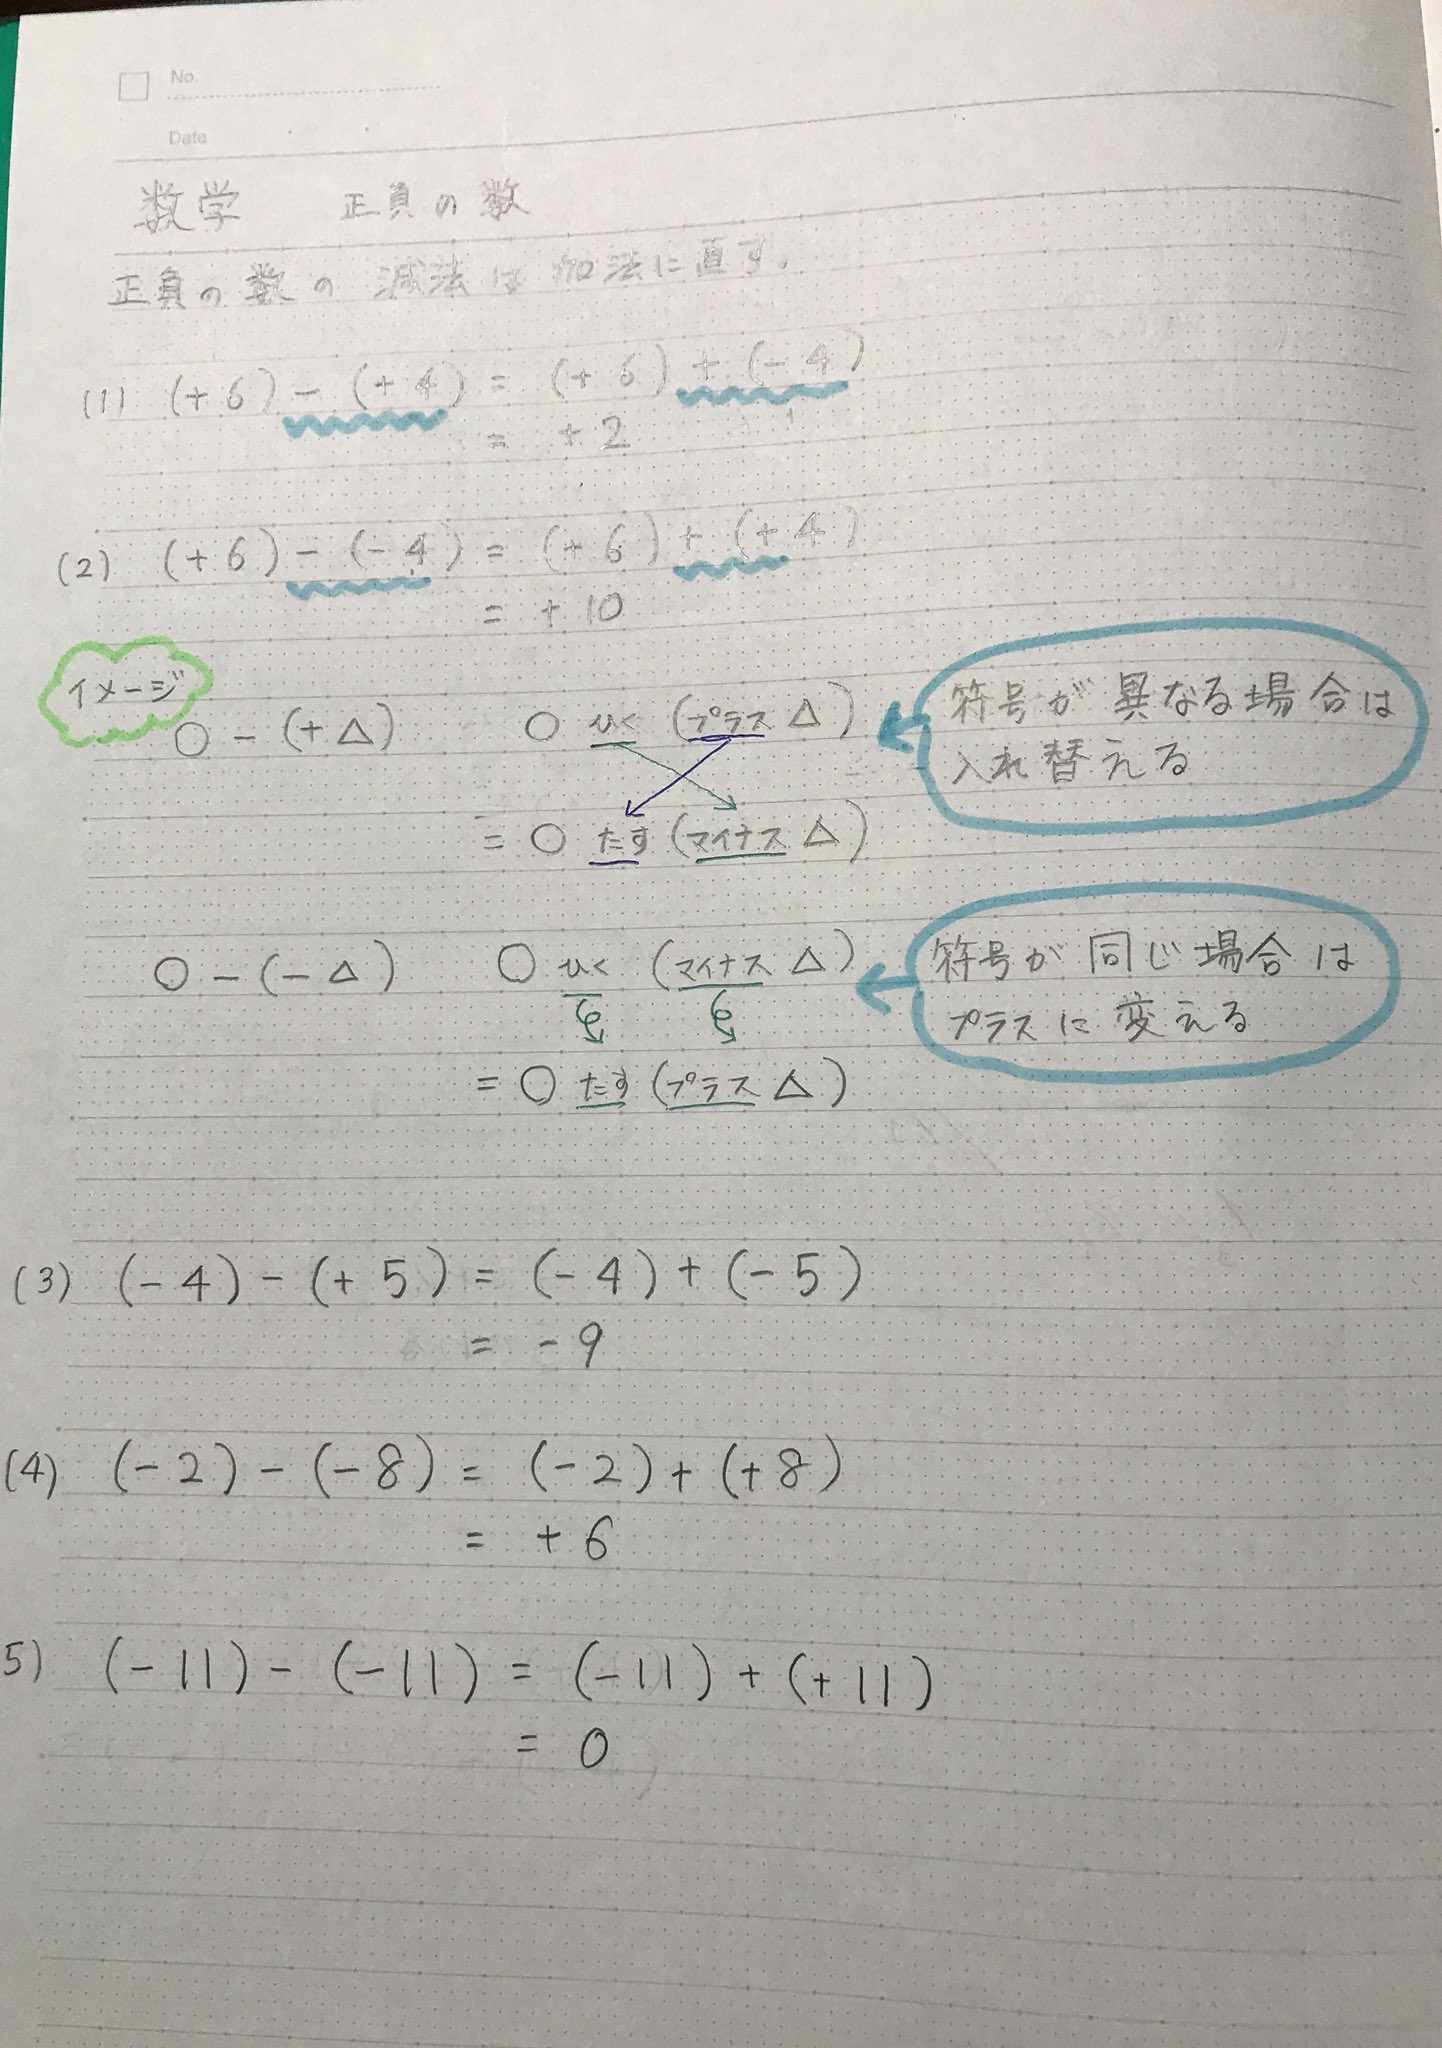 No.
Date
数学 正負の数
正負の数の減法は加法に直す.
(1) (+6)-(+4) = (+6)+(-4)
= +2
(2) (+6)-(-4) = (+6)+(+4)
= +10
イメージ
○-(+△) ○ひく(プラス△) 符号が異なる場合は
入れ替える
=○たす(マイナス△)
○-(-△) ○ひく(マイナス△) 符号が同じ場合は
プラスに変える
=○たす(プラス△)
(3) (-4)-(+5) = (-4)+(-5)
= -9
(4) (-2)-(-8) = (-2)+(+8)
= +6
5) (-11)-(-11) = (-11)+(+11)
= 0